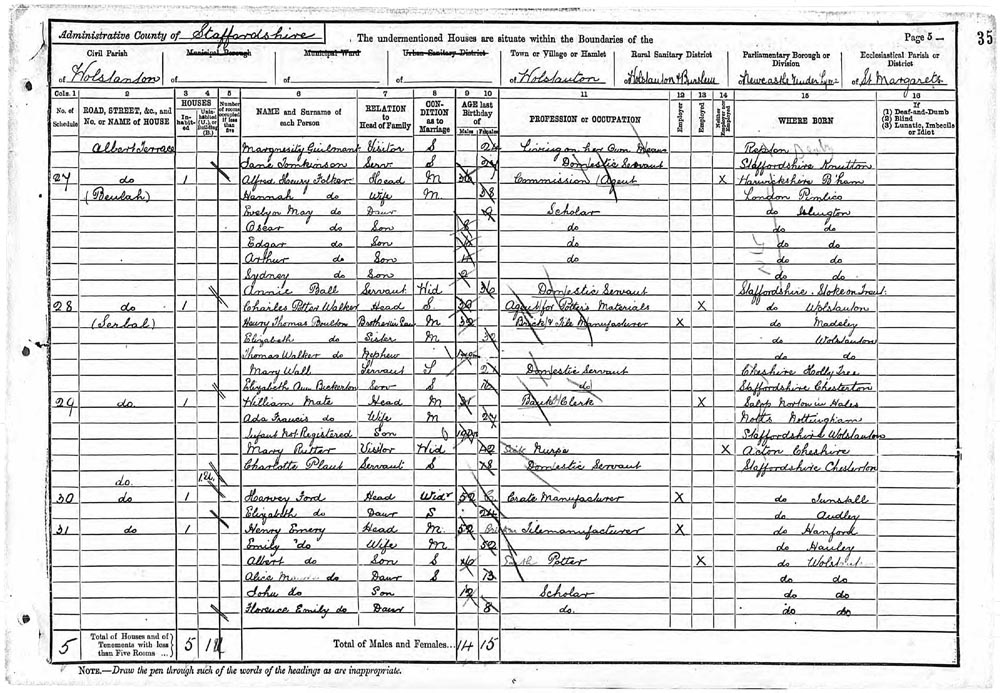 Administrative County of Staffordshire
The undermentioned Houses are situate within the Boundaries of the
Page 5
35
Civil Parish
Municipal Borough
Municipal Ward
Urban Sanitary District
Town or Village or Hamlet
Rural Sanitary District
Parliamentary Borough or Division
Ecclesiastical Parish or District
of Wolstanton
of
of
of
of Wolstanton
of Wolstanton & Burslem
of Newcastle under Lyme
of St Margarets
Cols. 1 2 3 4 5 6 7 8 9 10 11 12 13 14 15 16
No. of Schedule
ROAD, STREET, &c., and No. or NAME of HOUSE
HOUSES
Inhabited
Uninhabited (U.), or Building (B.)
Number of rooms occupied if less than five
NAME and Surname of each Person
RELATION to Head of Family
CONDITION as to Marriage
AGE last Birthday of
Males
Females
PROFESSION or OCCUPATION
Employer
Employed
Neither Employer nor Employed
WHERE BORN
If (1) Deaf-and-Dumb (2) Blind (3) Lunatic, Imbecile or Idiot
Albert Terrace Visitor S 24 Living on her Own Means Repton Derby
Jane Tomkinson Serv S Domestic Servant Staffordshire Knutton
27 do 1 Alfred Henry Folker Head M Commission Agent X Warwickshire B'ham
(Beulah) Hannah do Wife M. 38 London Pimlico
Evelyn May do Daur 9 Scholar do Islington
Oscar do Son 8 do do do
Edgar do Son do do do
Arthur do Son 4 do do do
Sydney do Son 2 do do
Annie Ball Servant Wid 36 Domestic Servant Staffordshire Stoke on Trent
28 do 1 Charles Potter Walker Head S Agent for Potters Materials X do Wolstanton
Henry Thomas Boulton Brother in Law M 32 Brick & Tile Manufacturer X do Madeley
Elizabeth do Sister M 32 do Wolstanton
Thomas Walker do Nephew do do
Mary Wall Servant S Domestic Servant Cheshire Holly Tree
Elizabeth Ann Bickerton Serv S do Staffordshire Chesterton
29 do. 1 William Mate Head M 31 Bank Clerk X Salop Norton in Hales
Ada Francis do Wife M 27 Notts Nottingham
Infant Not Registered Son Staffordshire Wolstanton
Mary Rutter Visitor Wid 42 Sick Nurse X Acton Cheshire
Charlotte Plant Servant S 18 Domestic Servant Staffordshire Chesterton
do.
30 do 1 Harvey Ford Head Widr 52 Crate Manufacturer X do Tunstall
Elizabeth do Daur S 24 do Audley
31 do 1 Henry Emery Head M. 52 Tilemanufacturer X do Hanford
Emily do Wife M 52 do Hanley
Albert do Son S Potter X do
Alice do Daur S 13 do do
John do Son 12 Scholar do do
Florence Emily do Daur 8 do. do do
5
Total of Houses and of Tenements with less than Five Rooms ...
5
Total of Males and Females...
14 15
NOTE.—Draw the pen through such of the words of the headings as are inappropriate.